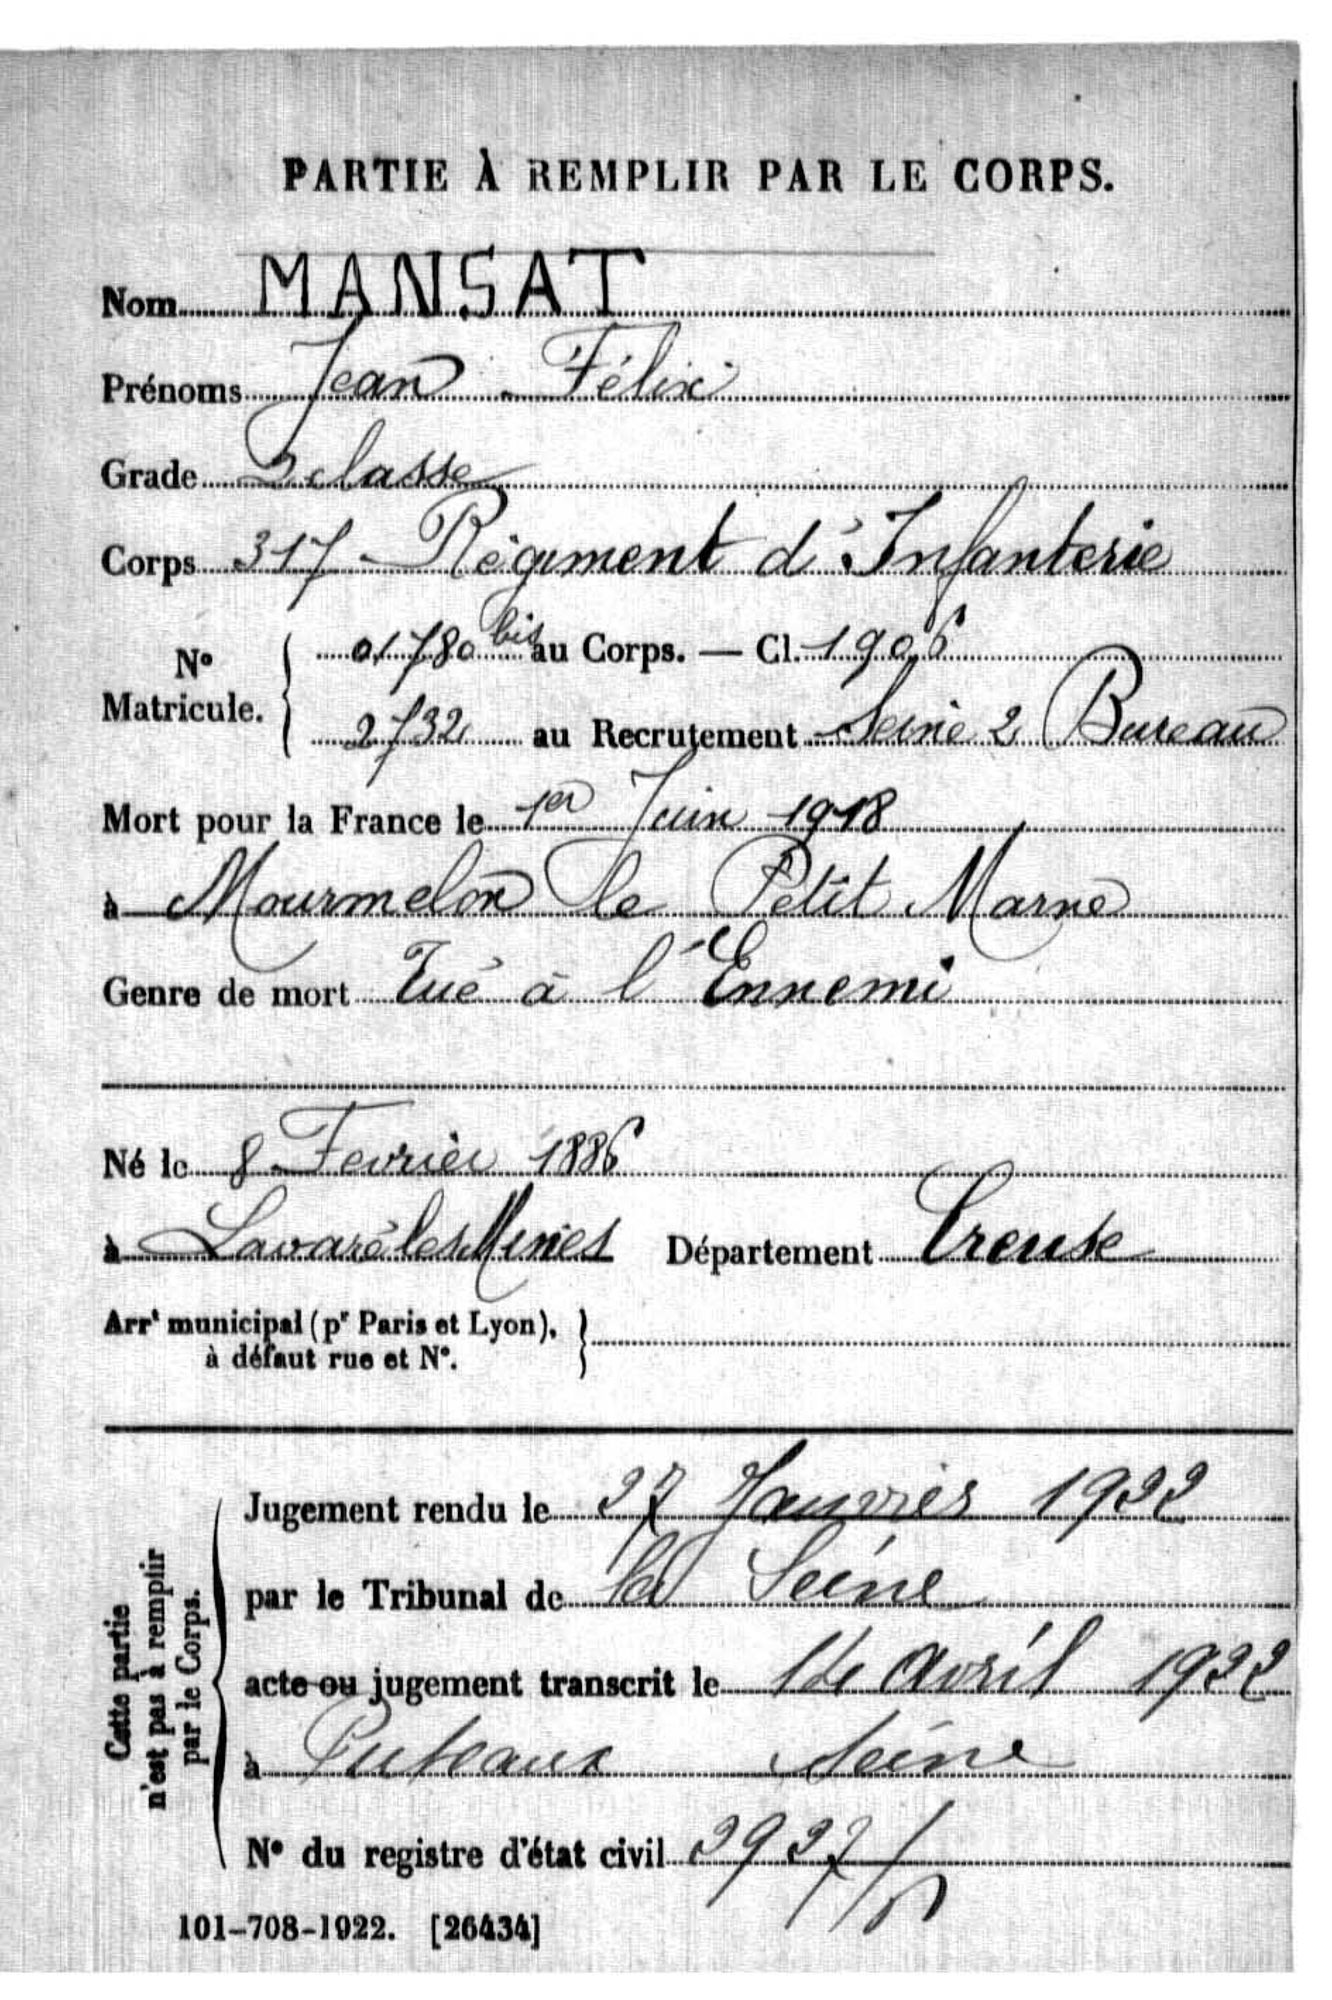 PARTIE À REMPLIR PAR LE CORPS.
Nom MANSAT
Prénoms Jean Félix
Grade 2 classe
Corps 317 Régiment d'Infanterie
N° Matricule. 01780 bis au Corps. — Cl. 1906
2732 au Recrutement Seine 2 Bureau
Mort pour la France le 1er Juin 1918
à Mourmelon le Petit Marne
Genre de mort Tué à l'Ennemi
Né le 8 Fevrier 1886
à Lavaré les Mines Département Creuse
Arrt municipal (pr Paris et Lyon),
à défaut rue et N°.
Cette partie
n'est pas à remplir
par le Corps.
Jugement rendu le 27 Janvier 1922
par le Tribunal de la Seine
acte ou jugement transcrit le 14 avril 1922
à Puteaux Seine
N° du registre d'état civil 2927/
101-708-1922. [26434]